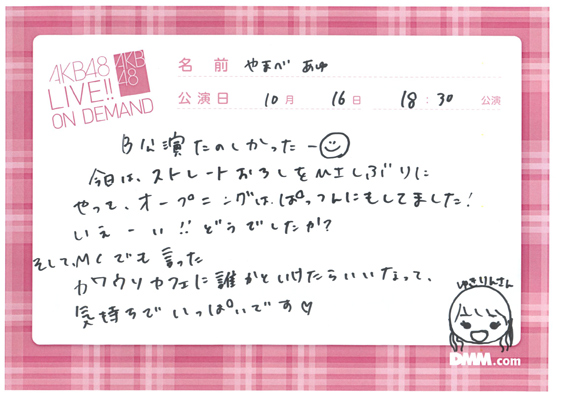 AKB48
LIVE!!
ON DEMAND
AKB
48
名前 やまべ あゆ
公演日 10月 16日 18:30 公演
B公演たのしかったー
今日は、ストレートおろしをMIしぶりに
やって、オープニングは、ぱっつんにもしてました!
いえーい!!どうでしたか?
そして、MCでも言った
カワウソカフェに誰かといけたらいいなって、
気持ちでいっぱいです♡
ゆきりんさん
DMM.com